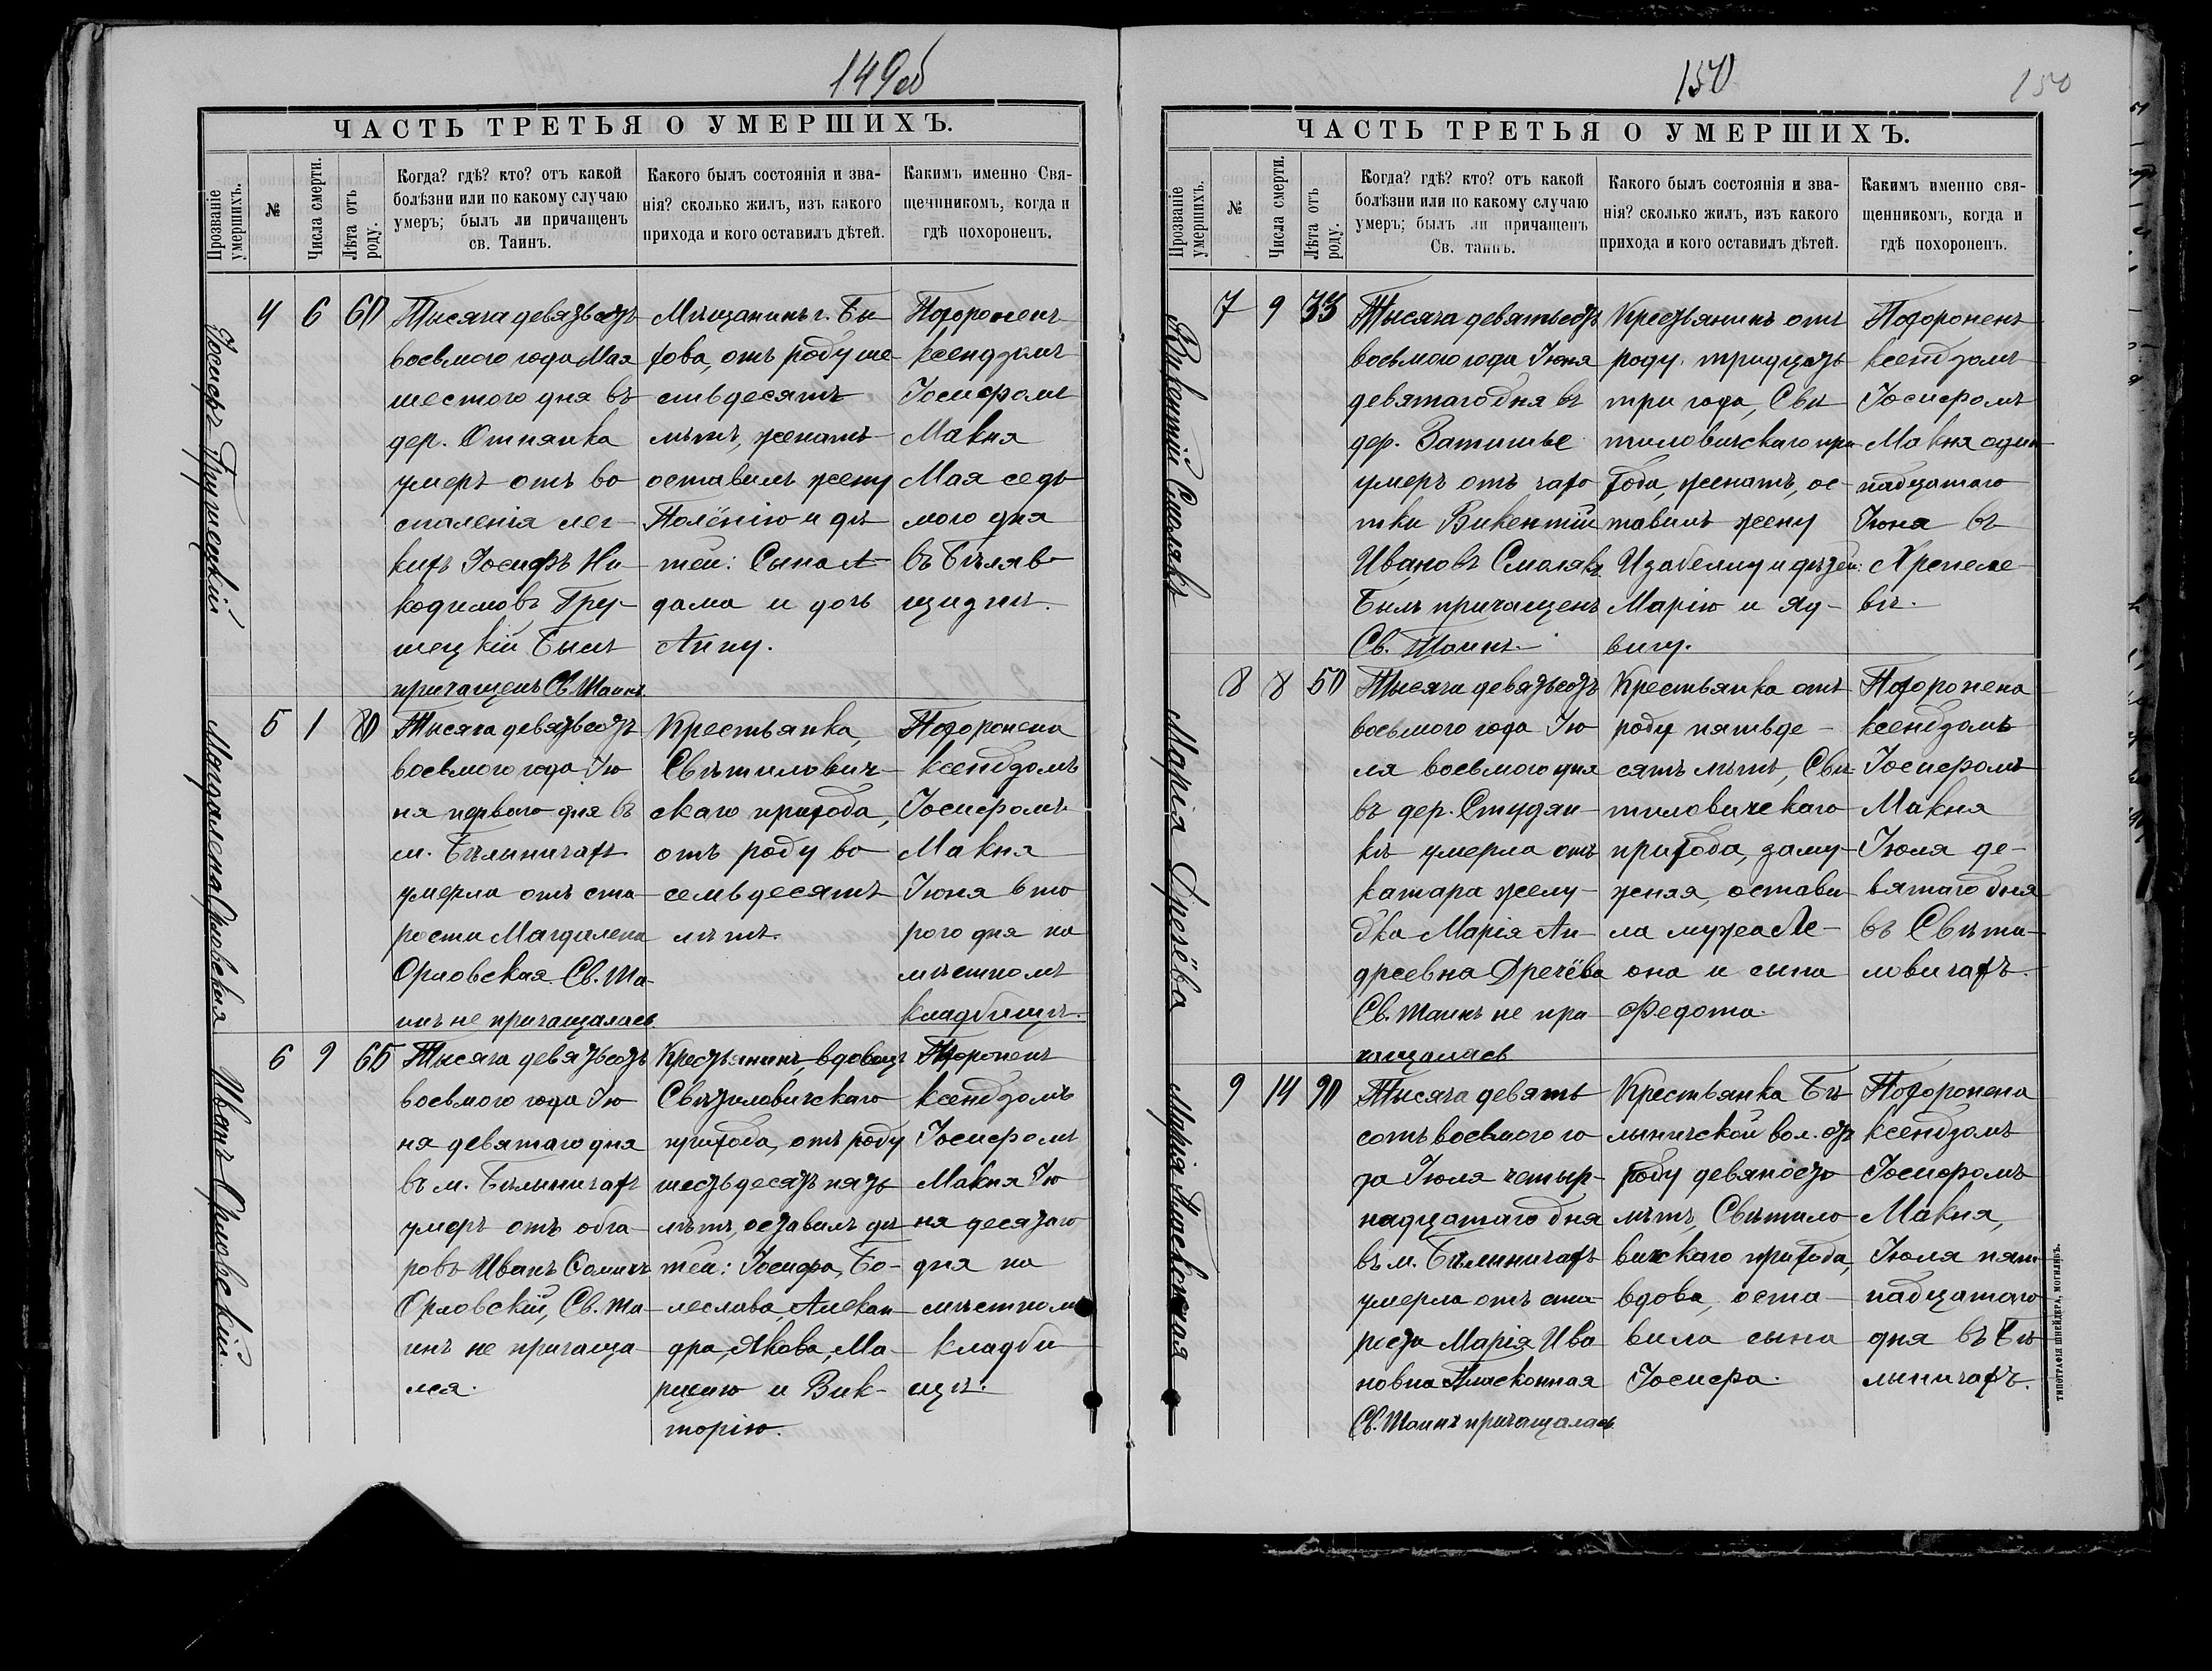 149об
ЧАСТЬ ТРЕТЬЯ О УМЕРШИХЪ.
Прозваніе умершихъ.
№
Числа смерти.
Лѣта отъ роду.
Когда? гдѣ? кто? отъ какой
болѣзни или по какому случаю
умеръ; былъ ли причащенъ
св. Таинъ.
Какого былъ состоянія и зва-
нія? сколько жилъ, изъ какого
прихода и кого оставилъ дѣтей.
Какимъ именно Свя-
щенникомъ, когда и
гдѣ похороненъ.
Іосифъ Грушецкій
4
6
60
Тысяча девятьсотъ
восьмого года Мая
шестого дня въ
дер. Отнянка
умеръ отъ во
спаленія лег-
кихъ Іосифъ Ни-
кодимовъ Гру-
шецкій Былъ
причащенъ Св. Таинъ
Мѣщанинъ г. Бы
хова, отъ роду ше-
стьдесятъ
лѣтъ, женатъ
оставилъ жену
Полёнію и дѣ
тей: Сына А-
дама и дочь
Анну.
Похороненъ
ксендзомъ
Іосифомъ
Макня
Мая седь
мого дня
въ Бѣляв-
щизнѣ.
Магдалена Орловская
5
1
80
Тысяча девятьсотъ
восьмого года Ію
ня перваго дня въ
м. Бѣлыничахъ
умерла отъ ста-
рости Магдалена
Орловская. Св. Та-
инъ не причащалась.
Крестьянка,
Свѣтилович-
скаго прихода,
отъ роду во
семьдесятъ
лѣтъ.
Похоронена
ксендзомъ
Іосифомъ
Макня
Іюня вто
рого дня на
мѣстномъ
кладбищѣ.
Иванъ Орловскій
6
9
65
Тысяча девятьсотъ
восьмого года Ію
ня девятаго дня
въ м. Бѣлыничахъ
умеръ отъ обга-
ровъ Иванъ
Орловскій, Св. Та-
инъ не причаща
лся.
Крестьянинъ, вдовецъ
Свѣтиловичскаго
прихода, отъ роду
шестьдесятъ пять
лѣтъ, оставилъ дѣ
тей: Іосифа, Бо-
леслава, Алексан
дра, Якова, Ма-
рцелю и Вик-
торію.
Похороненъ
ксендзомъ
Іосифомъ
Макня Ію
ня десятаго
дня на
мѣстномъ
кладби
щѣ.
150
150
ЧАСТЬ ТРЕТЬЯ О УМЕРШИХЪ.
Прозваніе умершихъ.
№
Числа смерти.
Лѣта отъ роду.
Когда? гдѣ? кто? отъ какой
болѣзни или по какому случаю
умеръ; былъ ли причащенъ
Св. таинъ.
Какого былъ состоянія и зва-
нія? сколько жилъ, изъ какого
прихода и кого оставилъ дѣтей.
Какимъ именно свя-
щенникомъ, когда и
гдѣ похороненъ.
Викентій Смолякъ
7
9
33
Тысяча девятьсотъ
восьмого года Іюня
девятаго дня въ
дер. Затишье
умеръ отъ чахо
тки Викентій
Ивановъ Смолякъ
Былъ причащенъ
Св. Таинъ.
Крестьянинъ отъ
роду тридцать
три года, Свѣ
тиловичскаго при
хода, женатъ, ос
тавилъ жену
Изабеллу и дѣтей:
Марію и Яд-
вигу.
Похороненъ
ксендзомъ
Іосифомъ
Макня один-
надцатаго
Іюня въ
Хрепеле-
вѣ.
Марія Дречёва
8
8
50
Тысяча девятьсотъ
восьмого года Ію
ля восьмого дня
въ дер. Студян-
кѣ умерла отъ
катара желу-
дка Марія Ан-
дреевна Дречёва
Св. Таинъ не при
чащалась
Крестьянка отъ
роду пятьде-
сятъ лѣтъ, Свѣ
тиловичскаго
прихода, заму-
жняя, остави
ла мужа Ле-
она и сына
Федота.
Похоронена
ксендзомъ
Іосифомъ
Макня
Іюля де-
вятаго дня
въ Свѣти-
ловичахъ.
Марія Пласконная
9
14
90
Тысяча девять
сотъ восьмого го
да Іюля четыр-
надцатаго дня
въ м. Бѣлыничахъ
умерла отъ ста-
рости Марія Ива
новна Пласконная
Св. Таинъ причащалась
Крестьянка Бѣ
лыничской вол. отъ
роду девяносто
лѣтъ, Свѣтило
вичскаго прихода,
вдова, оста-
вила сына
Іосифа.
Похоронена
ксендзомъ
Іосифомъ
Макня,
Іюля пят-
надцатаго
дня въ Бѣ
лыничахъ.
ТИПОГРАФІЯ ШНЕЙДЕРА, МОГИЛЕВЪ.